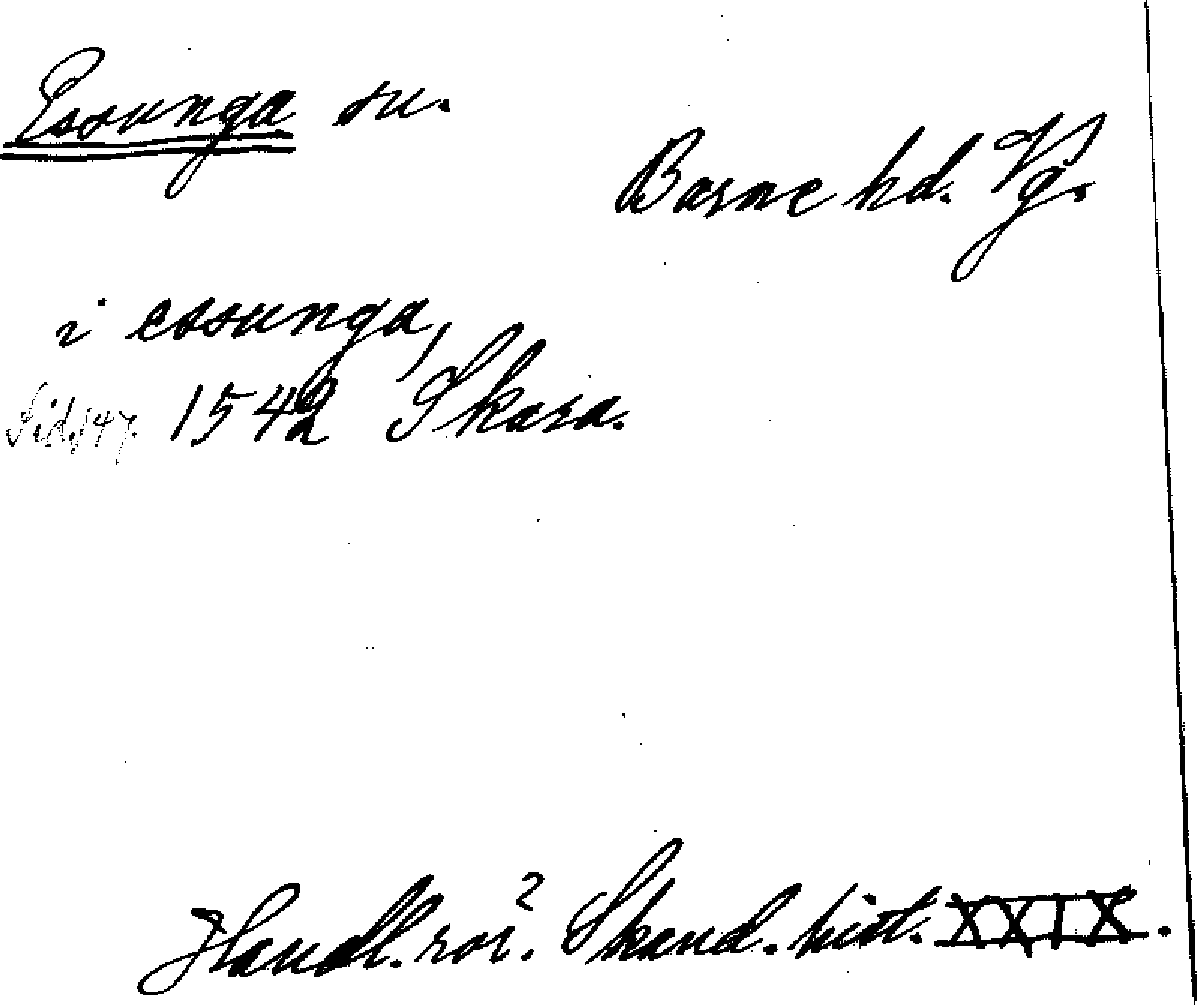 Essunga sn.
Barne hd. Vg.
i essunga,
Sid. 147. 1542 Skara.
Handl. rör. Skand. hist. XXIX.